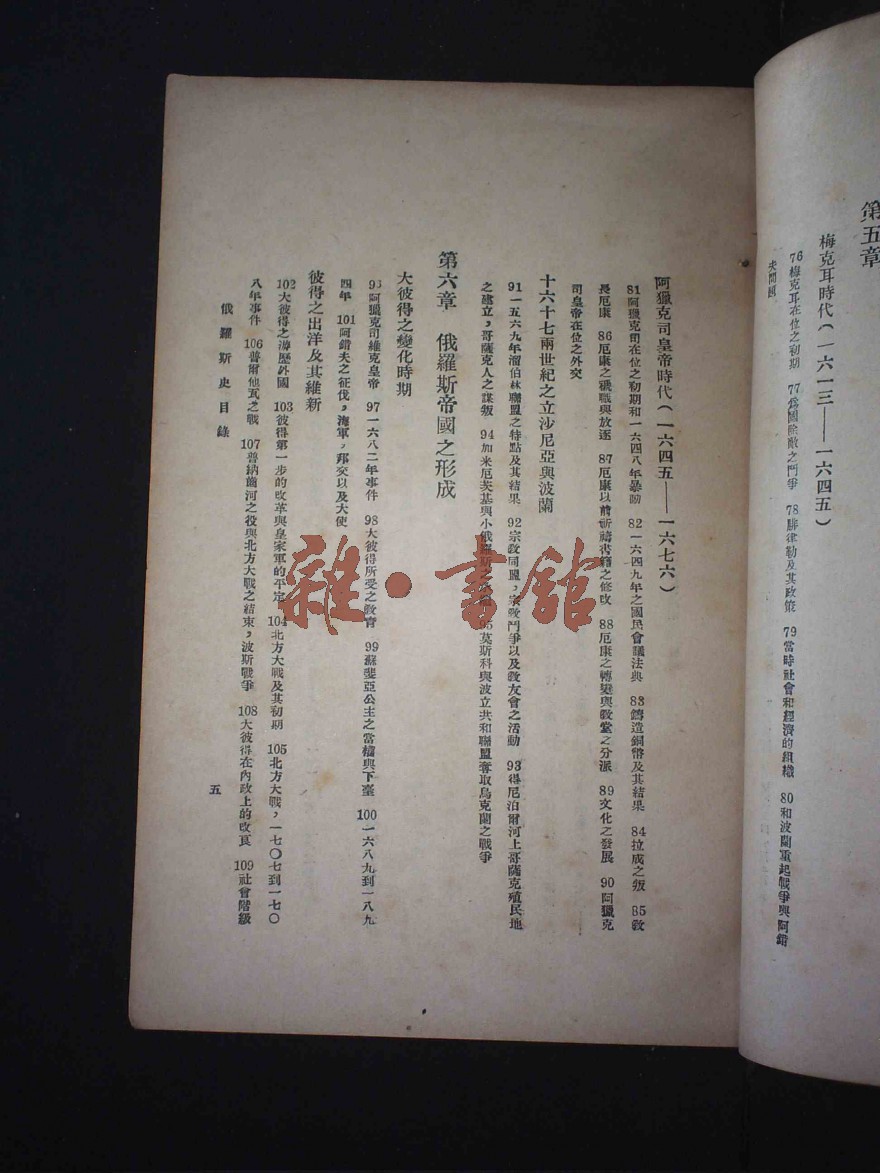 第五章
梅克耳時代(一六一三——一六四五)
76梅克耳在位之初期 77爲國除敵之鬥爭 78腓律勒及其政策 79當時社會和經濟的組織 80和波蘭重起戰爭與阿錯
夫問題
阿獵克司皇帝時代(一六四五——一六七六)
81阿獵克司在位之初期和一六四八年暴動 82一六四九年之國民會議法典 83鑄造銅幣及其結果 84拉成之叛 85敎
長厄康 86厄康之褫職與放逐 87厄康以前祈禱書籍之修改 88厄康之轉變與敎堂之分派 89文化之發展 90阿獵克
司皇帝在位之外交
十六十七兩世紀之立沙尼亞與波蘭
91一五六九年溜伯林聯盟之特點及其結果 92宗敎同盟,宗敎鬥爭以及敎友會之活動 93得尼泊爾河上哥薩克殖民地
之建立,哥薩克人之謀叛 94加米厄茨基與小俄羅斯之 95莫斯科與波立共和聯盟奪取烏克蘭之戰爭
第六章 俄羅斯帝國之形成
大彼得之變化時期
96阿獵克司維克皇帝 97一六八二年事件 98大彼得所受之敎育 99蘇斐亞公主之當權與下臺 100一六八九到一八九
四年 101阿錯夫之征伐,海軍,邦交以及大使
彼得之出洋及其維新
102大彼得之游歷外國 103彼得第一步的改革與皇家軍的平定 104北方大戰及其初期 105北方大戰,一七〇七到一七〇
八年事件 106普爾他瓦之戰 107普納爾河之役與北方大戰之結束,波斯戰爭 108大彼得在內政上的改良 109社會階級
俄羅斯史目錄
五
雜·書館